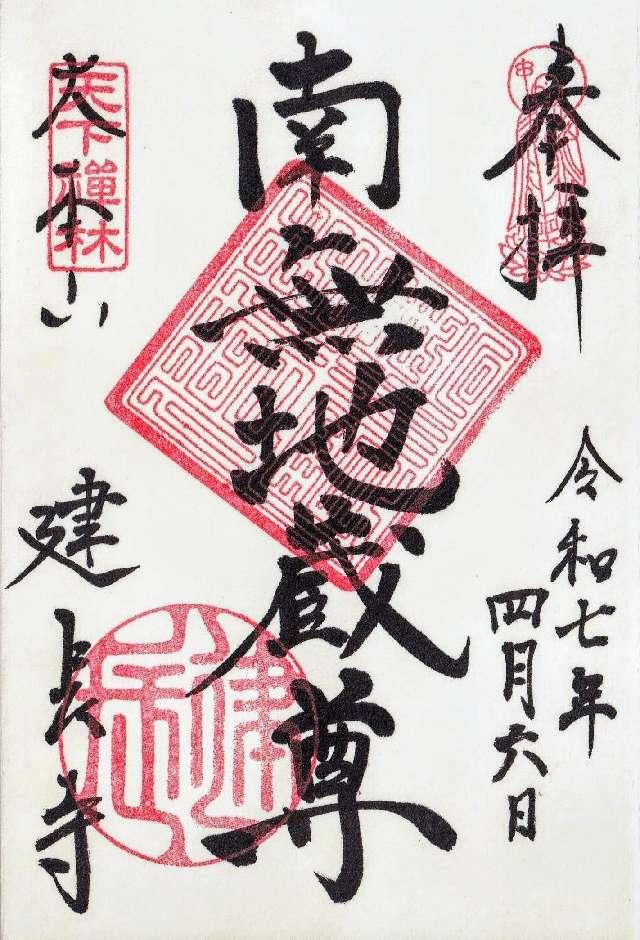 奉拝
令和七年
四月六日
南無地蔵尊
天下禪林
大本山
建長寺
建長